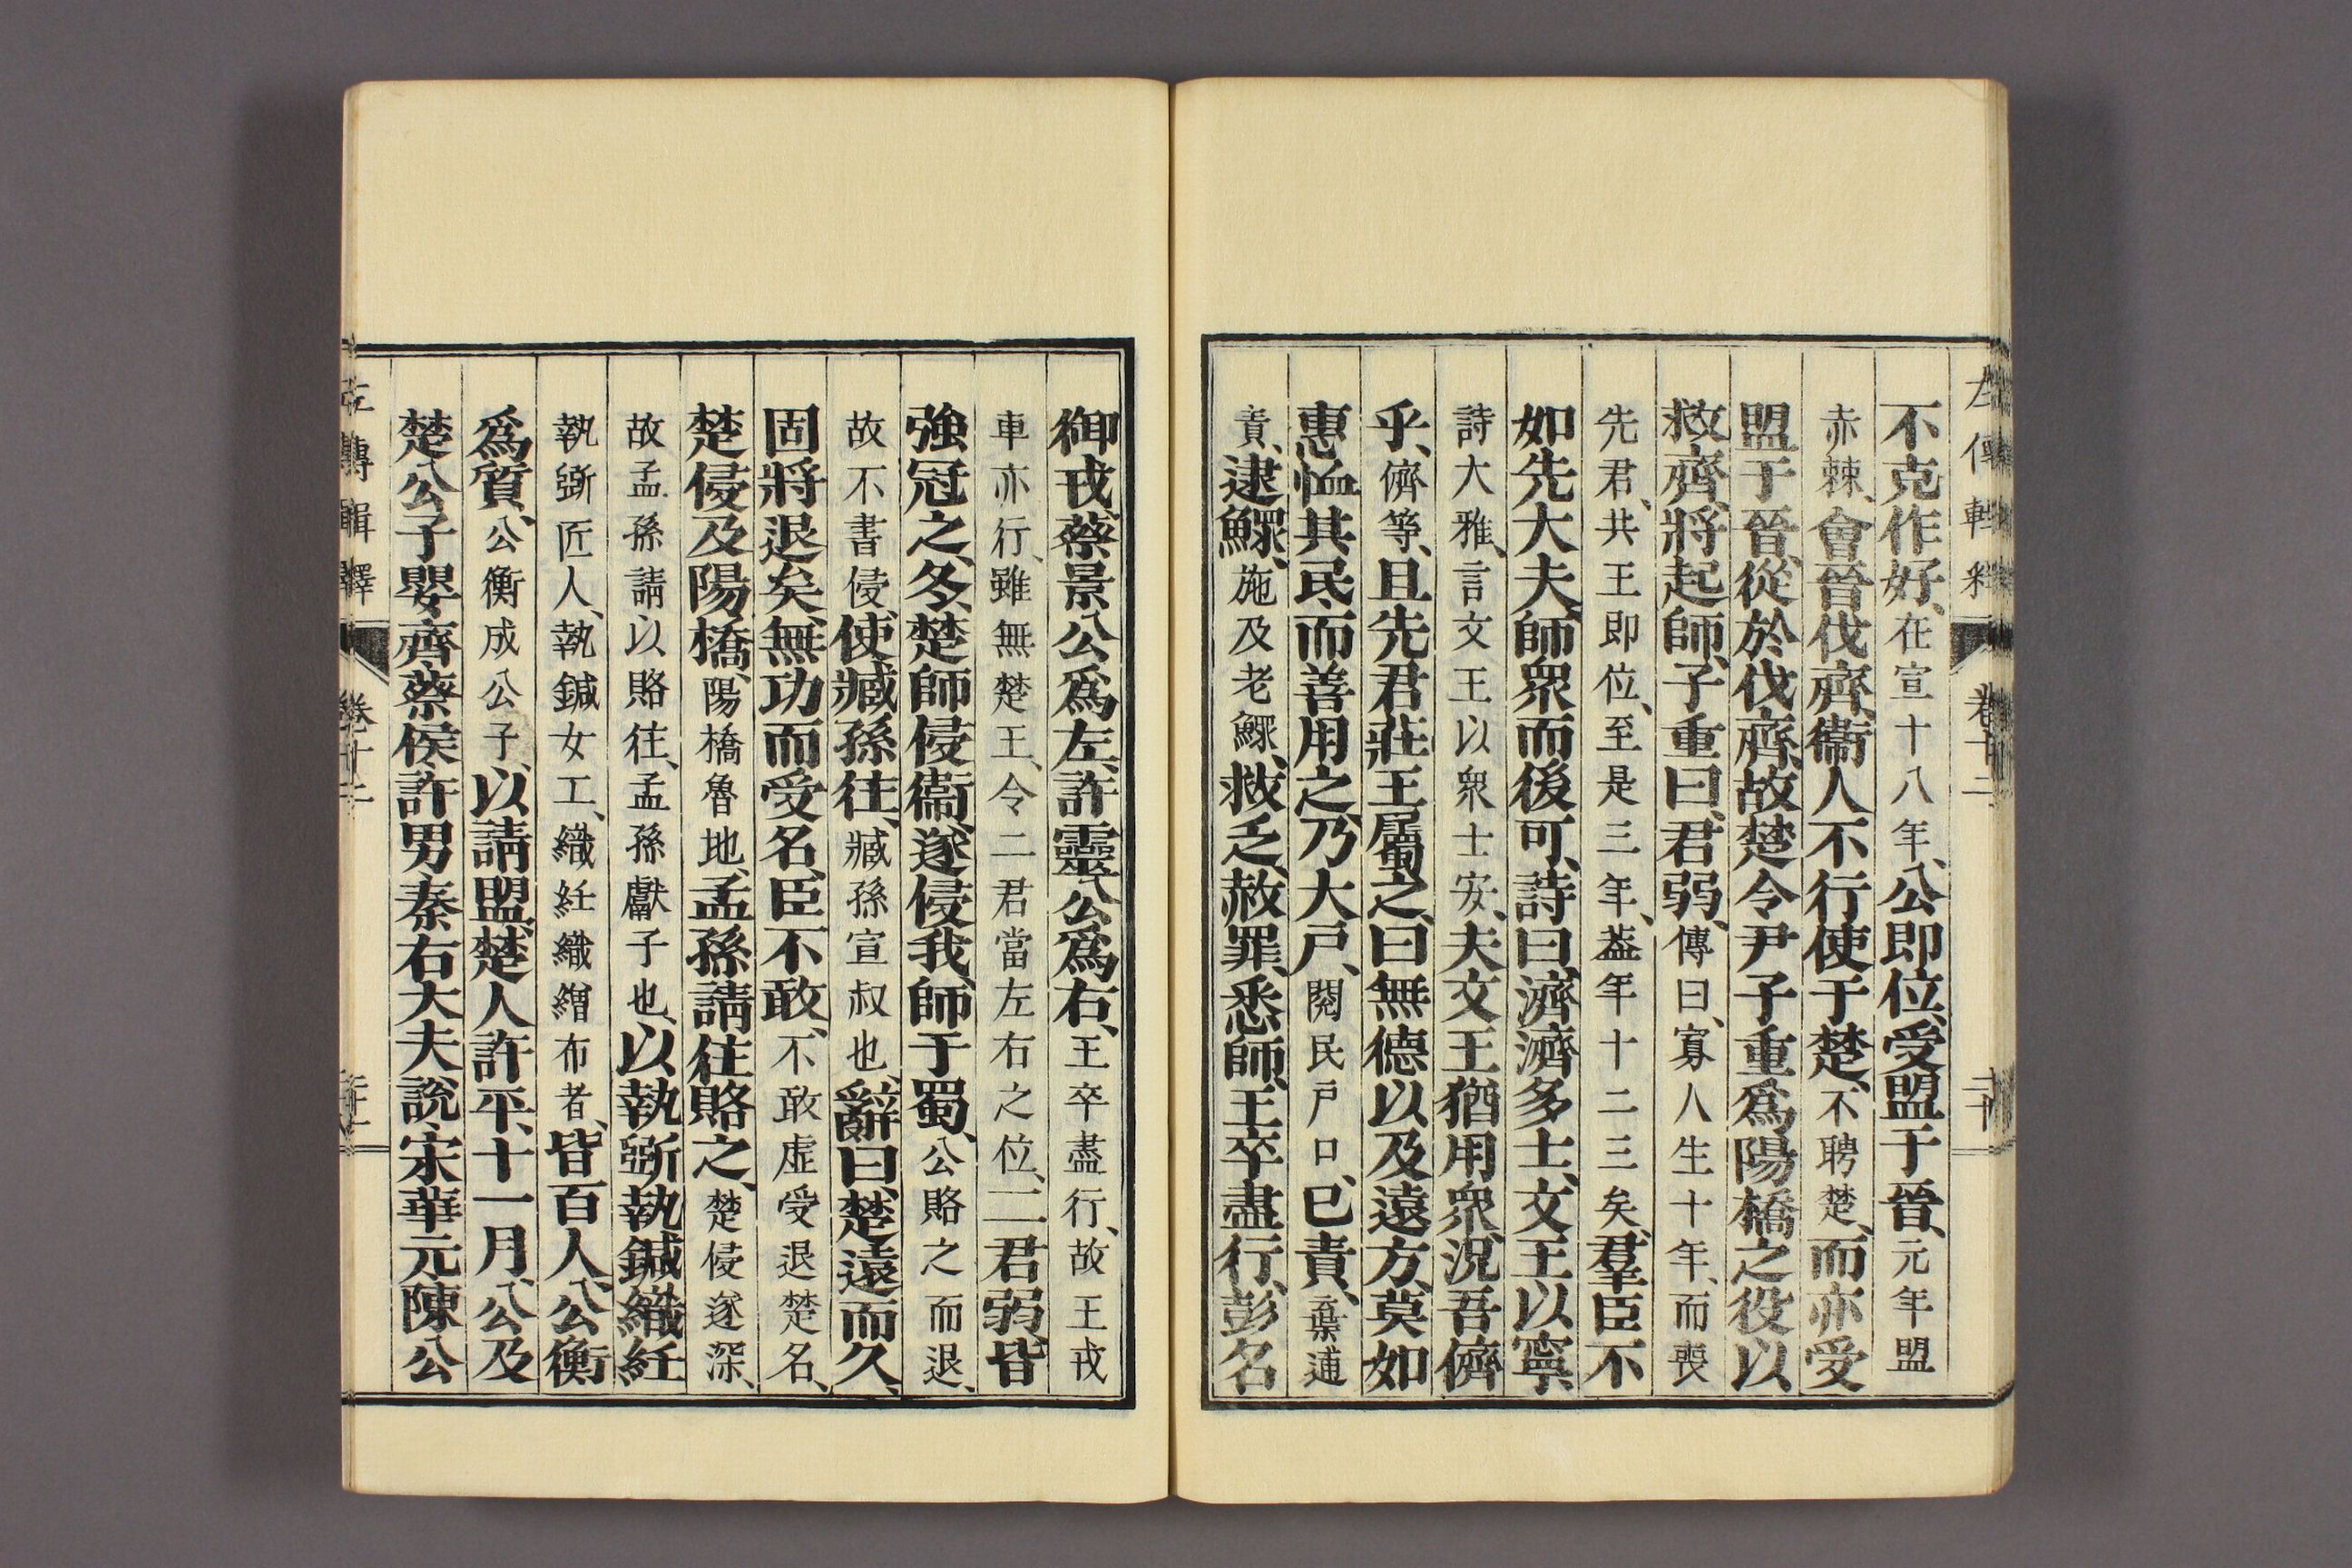 左傳輯釋 卷十二 二十
不克作好、在宣十八年、公即位、受盟于晉、元年盟
赤棘、會晉伐齊、衞人不行使于楚、不聘楚、而亦受
盟于晉、從於伐齊、故楚令尹子重爲陽橋之役以
救齊、將起師、子重曰、君弱、傳曰、寡人生十年、而喪
先君、共王即位、至是三年、葢年十二三矣、羣臣不
如先大夫、師衆而後可、詩曰、濟濟多士、文王以寧、
詩大雅、言文王以衆士安、夫文王猶用衆、況吾儕
乎、儕等、且先君莊王屬之、曰無德以及遠方、莫如
惠恤其民、而善用之、乃大戶、閱民戶口、已責、棄逋
責、逮鰥、施及老鰥、救乏、赦罪、悉師、王卒盡行、彭名
御戎、蔡景公爲左、許靈公爲右、王卒盡行、故王戎
車亦行、雖無楚王、令二君當左右之位、二君弱、皆
強冠之、冬、楚師侵衞、遂侵我、師于蜀、公賂之而退、
故不書侵、使臧孫往、臧孫宣叔也、辭曰、楚遠而久、
固將退矣、無功而受名、臣不敢、不敢虛受退楚名、
楚侵及陽橋、陽橋魯地、孟孫請往賂之、楚侵遂深、
故孟孫請以賂往、孟孫獻子也、以執斲執鍼織紝
執斲匠人、執鍼女工、織紝織繒布者、皆百人、公衡
爲質、公衡成公子、以請盟、楚人許平、十一月、公及
楚公子嬰齊蔡侯許男秦右大夫說宋華元陳公
左傳輯釋 卷十二